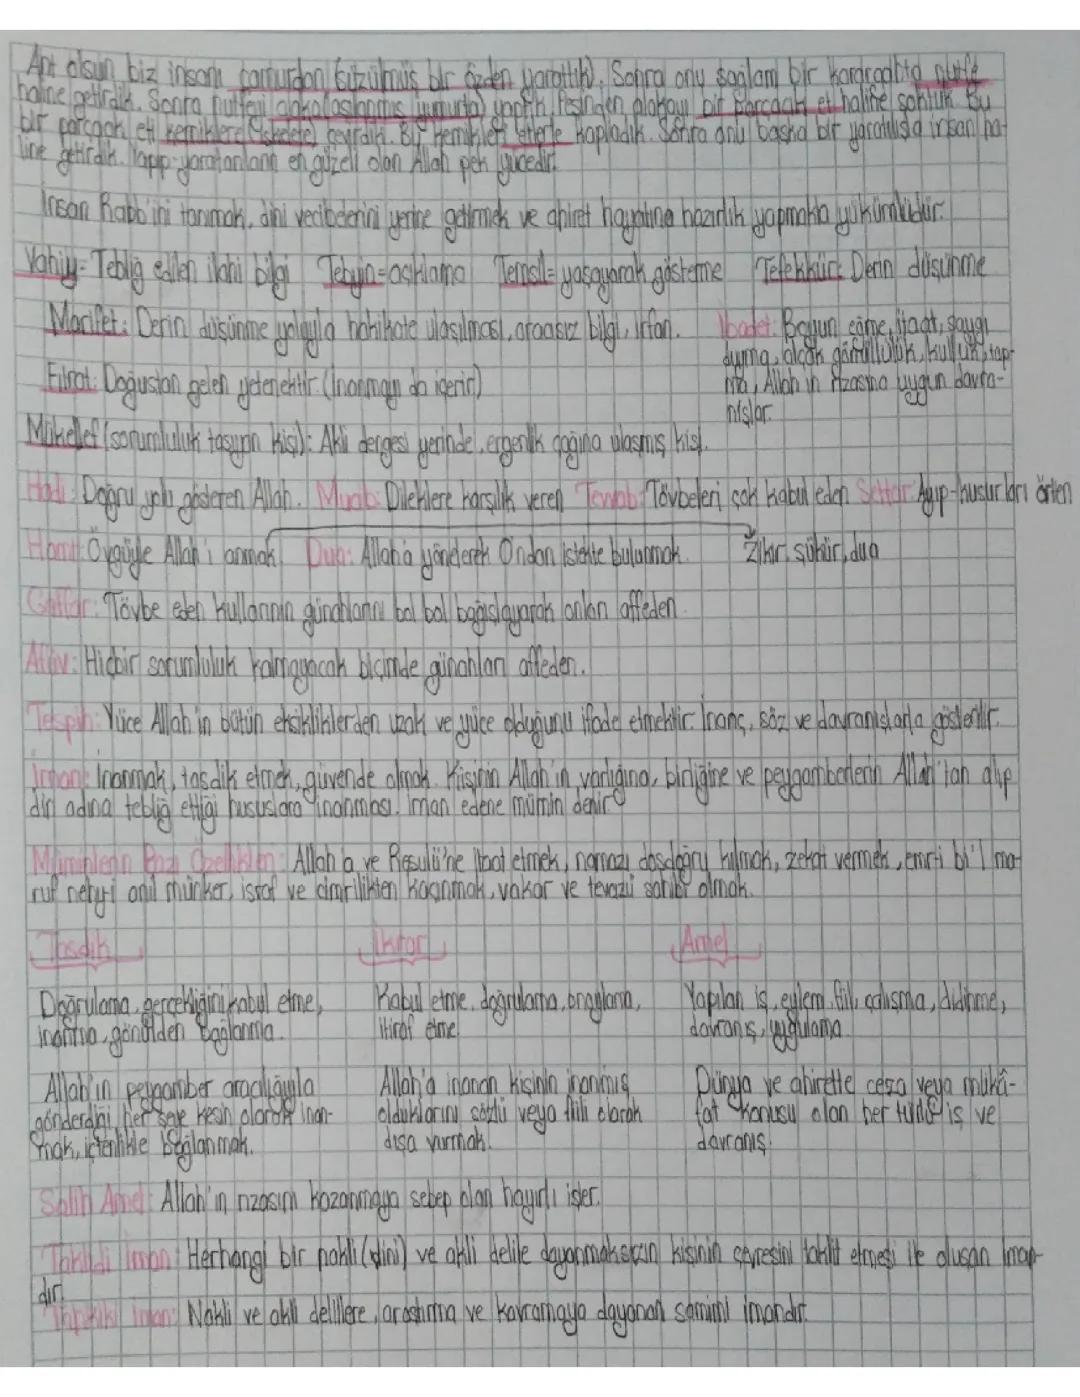 Ant olsun biz insanı çamurdan (süzülmüş bir özden yarattık). Sonra onu sağlam bir karargahta nutfe
haline getirdik. Sonra nutfeyi alaka(aşılanmış yumurta) yaptık. Peşinden alakayı bir parçacık et haline soktuk. Bu
bir parçacık eti kemiklere(iskelete) çevirdik. Bu kemikleri etlerle kapladık. Sonra onu başka bir yaratılışla insan ha-
line getirdik. Yapıp-yaratanların en güzeli olan Allah pek yücedir.
İnsan Rabb'ini tanımak, dini vecibelerini yerine getirmek ve ahiret hayatına hazırlık yapmakla yükümlüdür.
Vahiy= Tebliğ edilen ilahi bilgi Tebyin=açıklama Temsil= yaşayarak gösterme Tefekkür: Derin düşünme
Marifet: Derin düşünme yoluyla hakikate ulaşılması, aracısız bilgi, irfan. İbadet: Boyun eğme, itaat, saygı
duyma, alçak gönüllülük, kulluk, tap-
Fıtrat: Doğuştan gelen yetenektir. (İnanmayı da içerir) ma, Allah'ın rızasına uygun davra-
nışlar.
Mükellef (sorumluluk taşıyan kişi): Akli dengesi yerinde, ergenlik çağına ulaşmış kişi.
Hadi: Doğru yolu gösteren Allah. Mucib: Dileklere karşılık veren Tevvab: Tövbeleri çok kabul eden Settar: Ayıp-kusurları örten
Hamt: Övgüyle Allah'ı anmak Dua: Allah'a yönelerek O'ndan istekte bulunmak. Zikir, şükür, dua
Gaffar: Tövbe eden kullarının günahlarını bol bol bağışlayarak onları affeden.
Afüv: Hiçbir sorumluluk kalmayacak biçimde günahları affeden.
Tespih: Yüce Allah'ın bütün eksikliklerden uzak ve yüce olduğunu ifade etmektir. İnanç, söz ve davranışlarla gösterilir.
İman: İnanmak, tasdik etmek, güvende olmak. Kişinin Allah'ın varlığına, birliğine ve peygamberlerin Allah'tan alıp
din adına tebliğ ettiği hususlara inanması. İman edene mümin denir.
Müminlerin Bazı Özellikleri: Allah'a ve Resulü'ne itaat etmek, namazı dosdoğru kılmak, zekat vermek, emri bi'l ma-
ruf nehyi anil münker, israf ve cimrilikten kaçınmak, vakar ve tevazu sahibi olmak.
Tasdik İkrar Amel
Doğrulama, gerçekliğini kabul etme, Kabul etme, doğrulama, onaylama, Yapılan iş, eylem, fiil, çalışma, didinme,
inanma, gönülden bağlanma. itiraf etme. davranış, uygulama.
Allah'ın peygamber aracılığıyla Allah'a inanan kişinin inanmış Dünya ve ahirette ceza veya mükâ-
gönderdiği her şeye kesin olarak inan- olduklarını sözlü veya fiili olarak fat konusu olan her türlü iş ve
mak, içtenlikle bağlanmak. dışa vurmak. davranış.
Salih Amel: Allah'ın rızasını kazanmaya sebep olan hayırlı işler.
Taklidi İman: Herhangi bir nakli(dini) ve akli delile dayanmaksızın kişinin çevresini taklit etmesi ile oluşan iman-
dır.
Tahkiki İman: Nakli ve akli delillere, araştırma ve kavramaya dayanan samimi imandır.